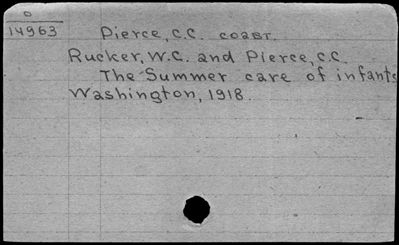 O
14963 Pierce, C.C. coaut.
Rucker, W.C. and Pierce, C.C.
The Summer care of infants
Washington, 1918.